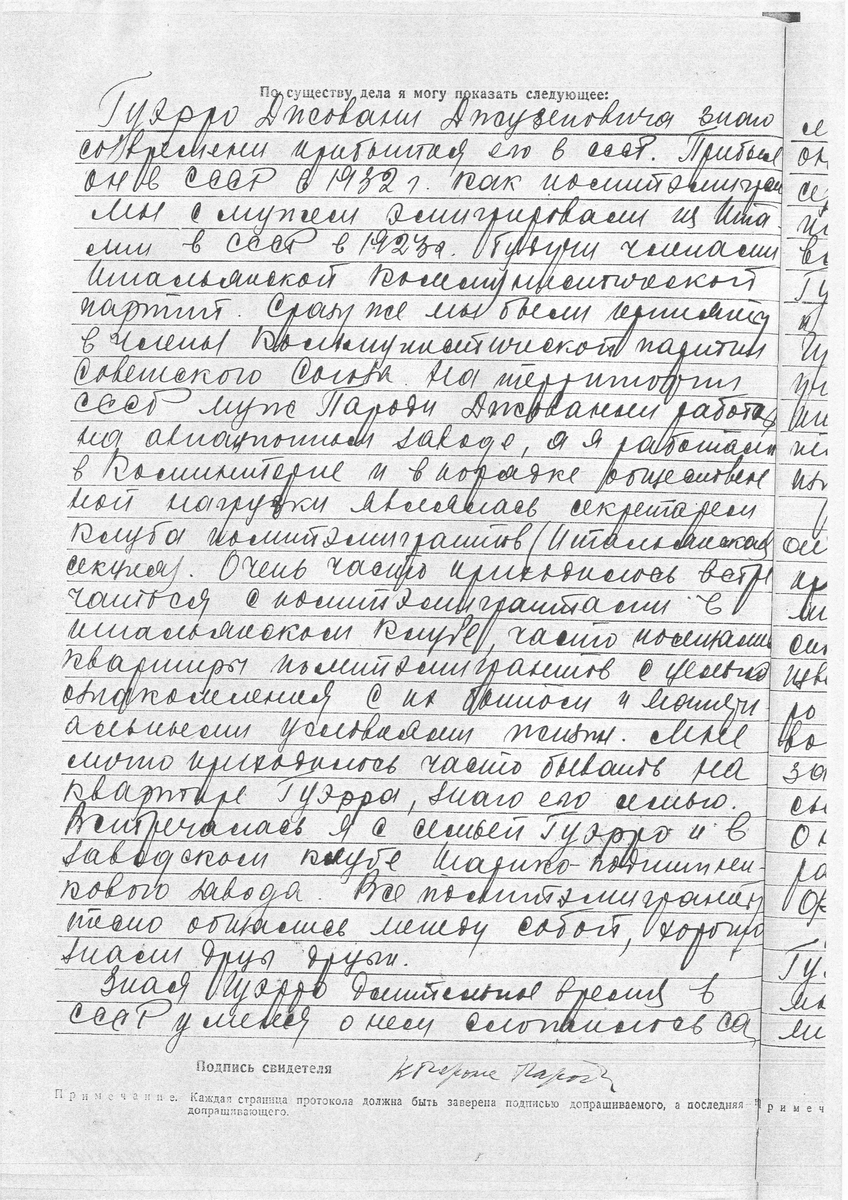 По существу дела я могу показать следующее:
Гуэрро Джовани Джузеповича знаю
со времени прибытия его в СССР. Прибыл
он в СССР в 1932 г. как политэмигран
Мы с мужем эмигрировали из Ита-
лии в СССР в 1923г. Будучи членами
Итальянской Коммунистической
партии. Сразу же мы были приняты
в члены Коммунистической партии
Советского Союза. На территории
СССР муж Пароди Джованни работал
на авиационном заводе, а я работала
в Коминтерне и в порядке обществен
ной нагрузки являлась секретарем
клуба политэмигрантов (Итальянская
секция). Очень часто приходилось встре
чаться с политэмигрантами в
итальянском клубе, часто посещали
квартиры политэмигрантов с целью
ознакомления с их бытом и матери
альными условиями жизни. Мне
лично приходилось часто бывать на
квартире Гуэрра, знаю его семью.
Встречалась я с семьей Гуэрро и в
заводском клубе Шарико-подшипни-
кового завода. Все политэмигранты
тесно общались между собой, хорошо
знали друг друга.
Зная Гуэрро длительное время в
СССР у меня о нем сложилось са
Подпись свидетеля
Примечание. Каждая страница протокола должна быть заверена подписью допрашиваемого, а последняя
допрашивающего.
Примеч